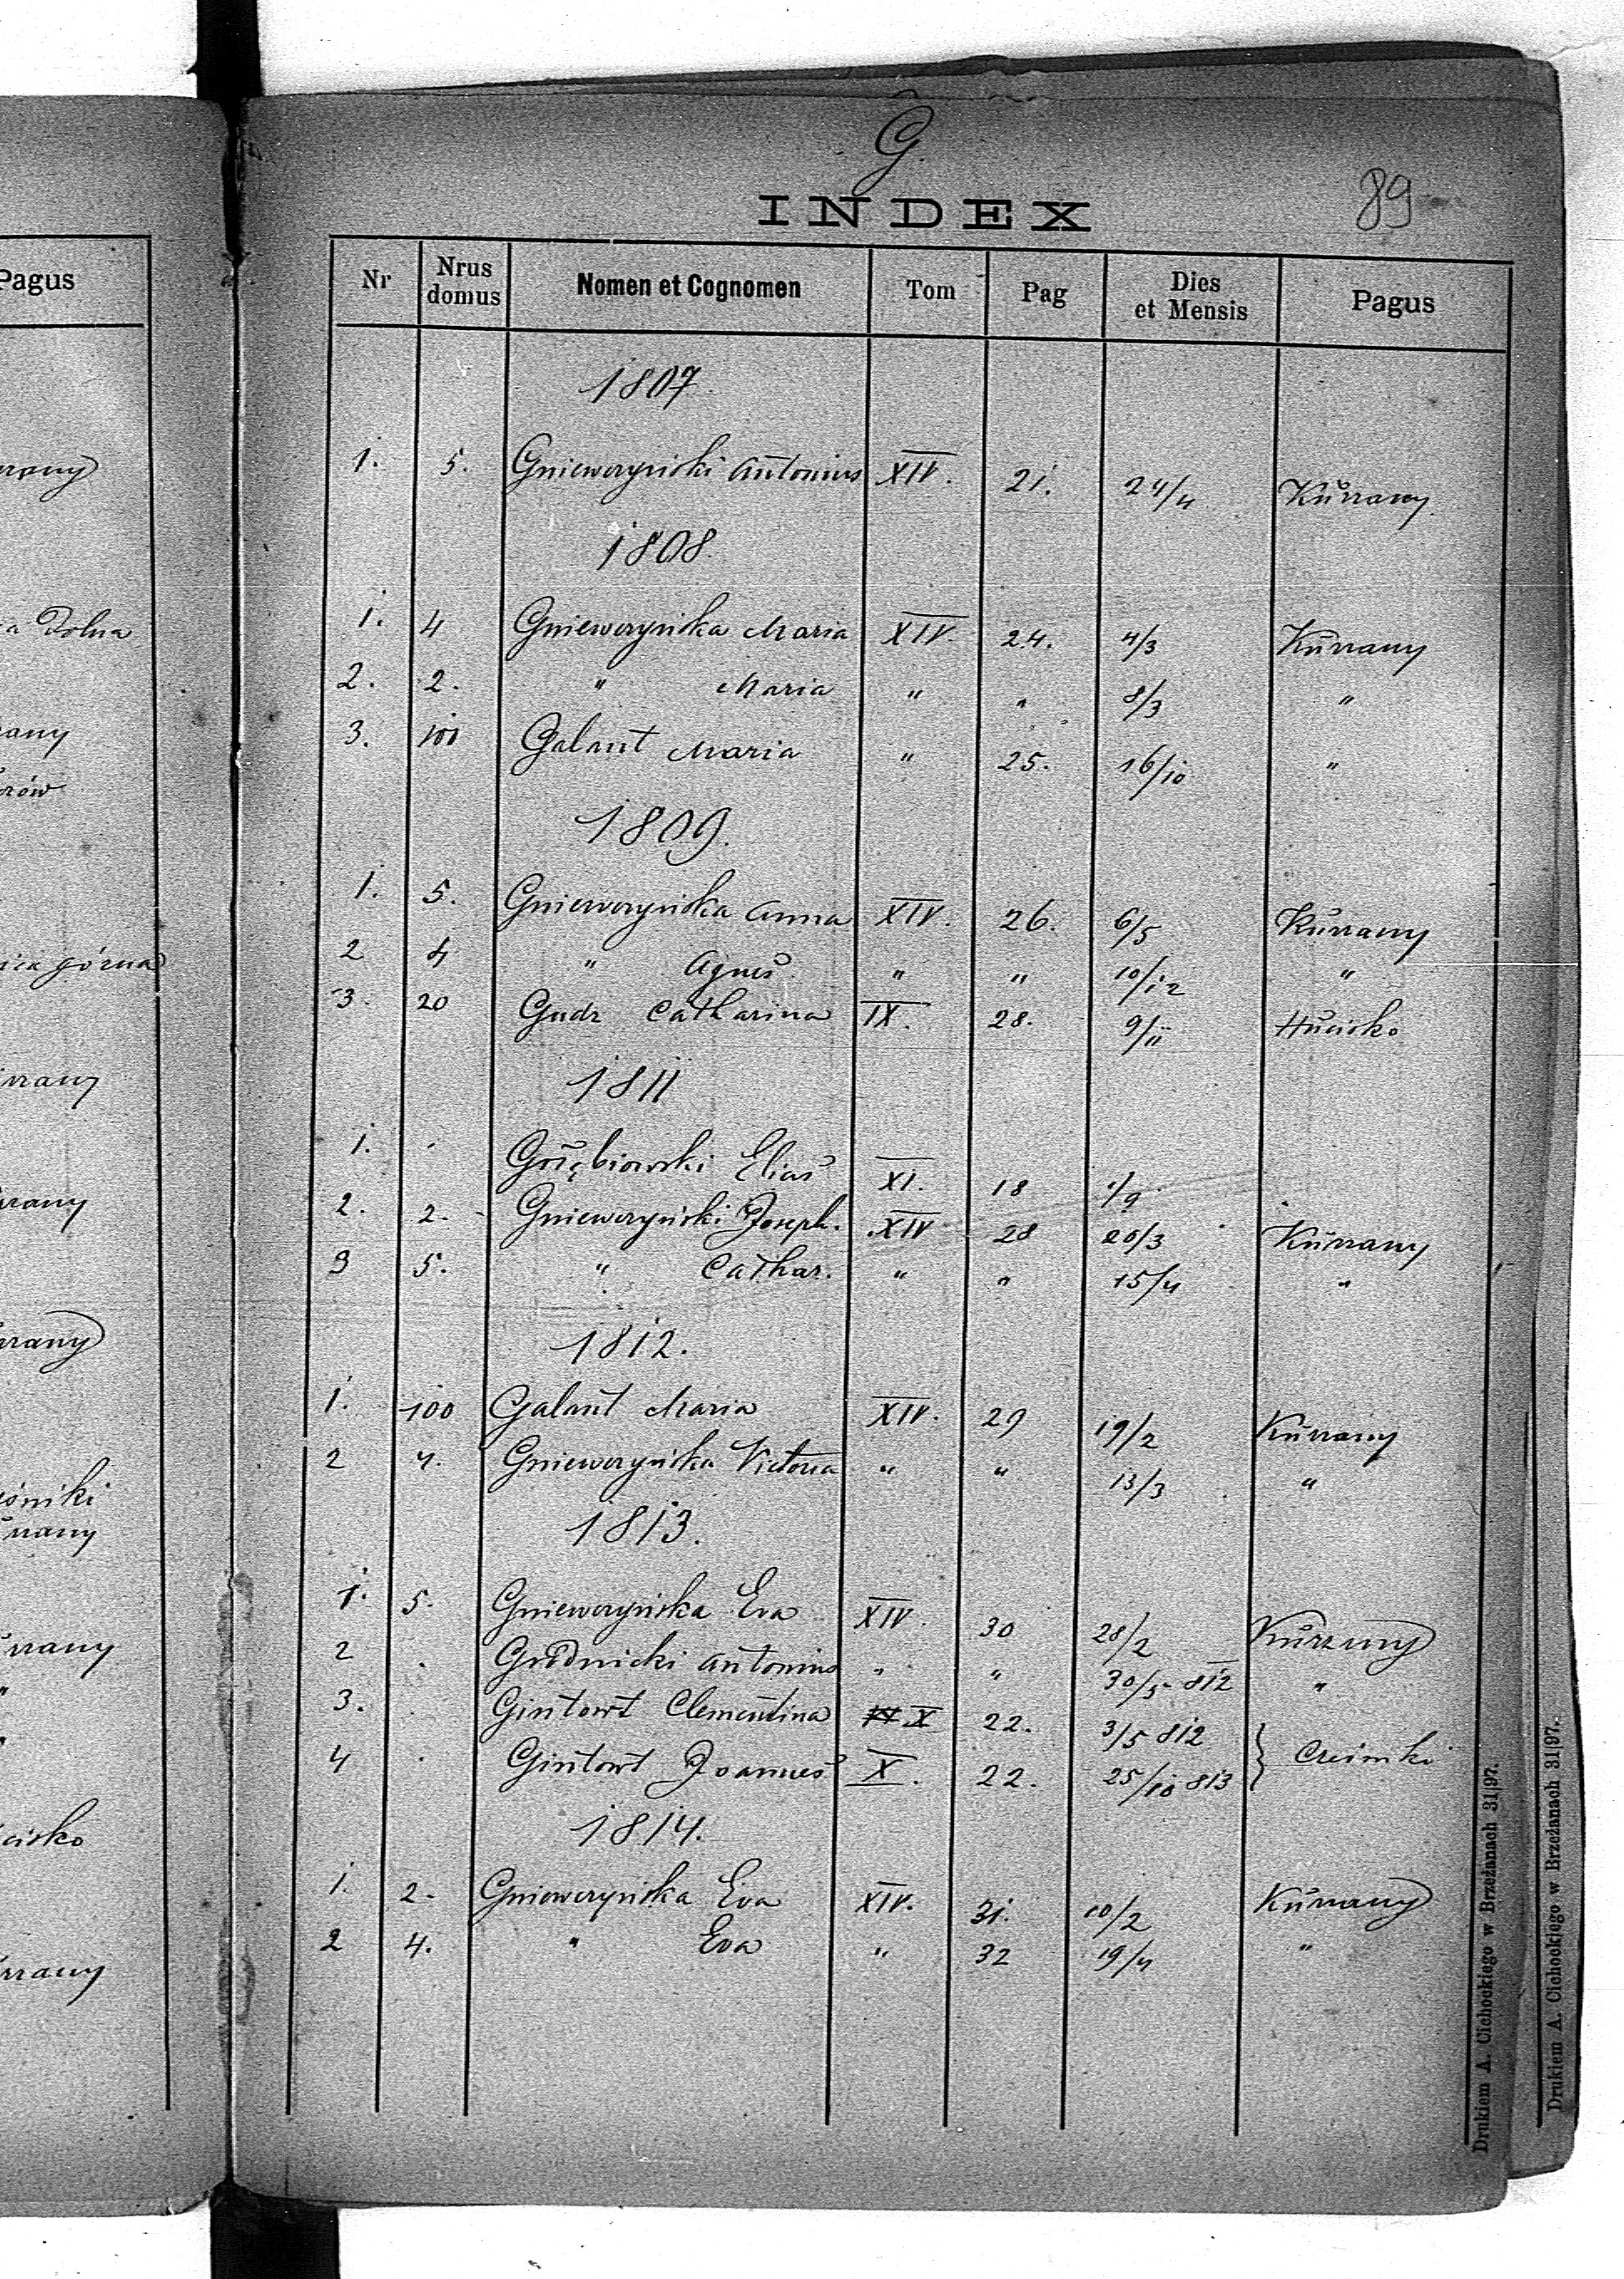 G.
INDEX
89
Pagus
Nr | Nrus domus | Nomen et Cognomen | Tom | Pag | Dies et Mensis | Pagus
1807
1. 5. Gniewczyński Antonius XIV. 21. 24/4 Kurzany
1808
1. 4 Gniewczyńska Maria XIV. 24. 4/3 Kurzany
2. 2. " Maria " " 8/3 "
3. 100 Galant Maria " 25. 16/10 "
1809.
1. 5. Gniewczyńska Anna XIV. 26. 6/5 Kurzany
2 4 " Agnes " " 10/12 "
3. 20 Gudz Catharina IX. 28. 9/11 Hucisko
1811
1. Gołębiowski Elias XI. 18 1/9
2. 2. Gniewczyński Joseph. XIV 28 20/3 Kurzany
3 5. " Cathar. " " 15/4 "
1812.
1. 100 Galant Maria XIV. 29 19/2 Kurzany
2 4. Gniewczyńska Victoria " " 13/3 "
1813.
1. 5. Gniewczyńska Eva XIV. 30 28/2 Kurzany
2 Grodnicki Antonius " " 30/5 812 "
3. Gintowt Clementina X 22. 3/5 812
4 Gintowt Joannes X. 22. 25/10 813
1814.
1. 2. Gniewczyńska Eva XIV. 31. 10/2 Kurzany
2 4. " Eva " 32 19/4 "
Drukiem A. Cichockiego w Brzeżanach 31|97.
Drukiem A. Cichockiego w Brzeżanach 31|97.